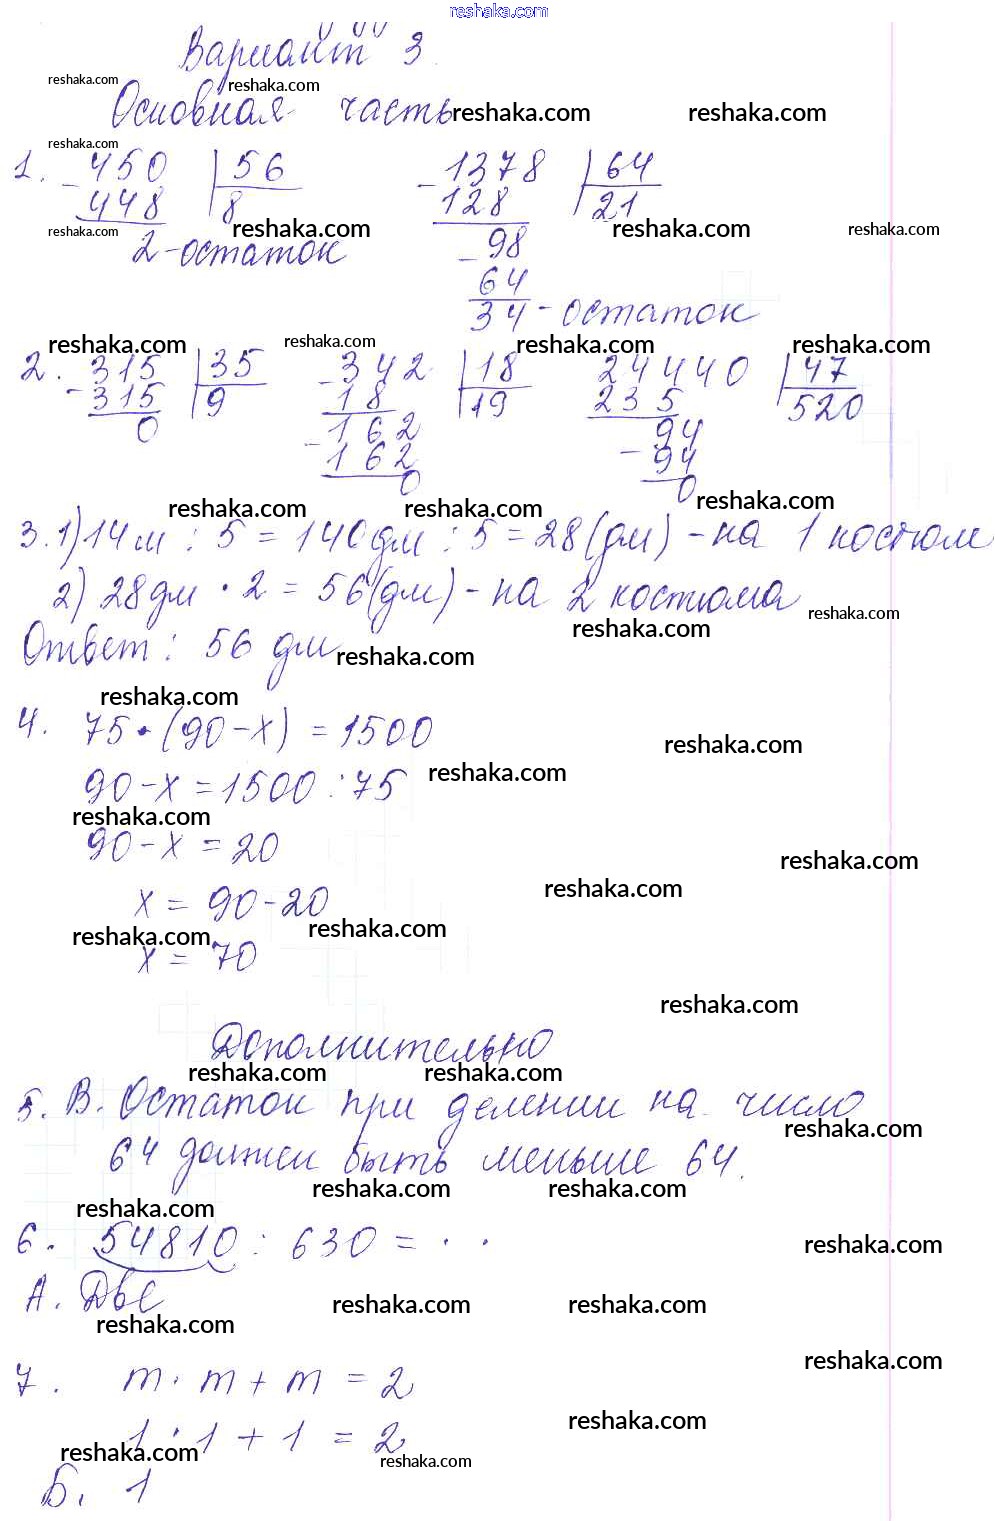 reshaka.com
Вариант 3
Основная часть
1. 450 | 56
- 448 | 8
2 - остаток
- 1378 | 64
128 | 21
- 98
64
34 - остаток
2. 315 | 35
- 315 | 9
0
- 342 | 18
18 | 19
- 162
162
0
24440 | 47
235 | 520
94
- 94
0
3. 1) 14 м : 5 = 140 дм : 5 = 28 (дм) - на 1 костюм
2) 28 дм · 2 = 56 (дм) - на 2 костюма
Ответ: 56 дм
4. 75 · (90 - х) = 1500
90 - х = 1500 : 75
90 - х = 20
х = 90 - 20
х = 70
Дополнительно
5. В. Остаток при делении на число
64 должен быть меньше 64.
6. 54810 : 630 = . .
А. Две
7. m · m + m = 2
1 · 1 + 1 = 2
Б. 1